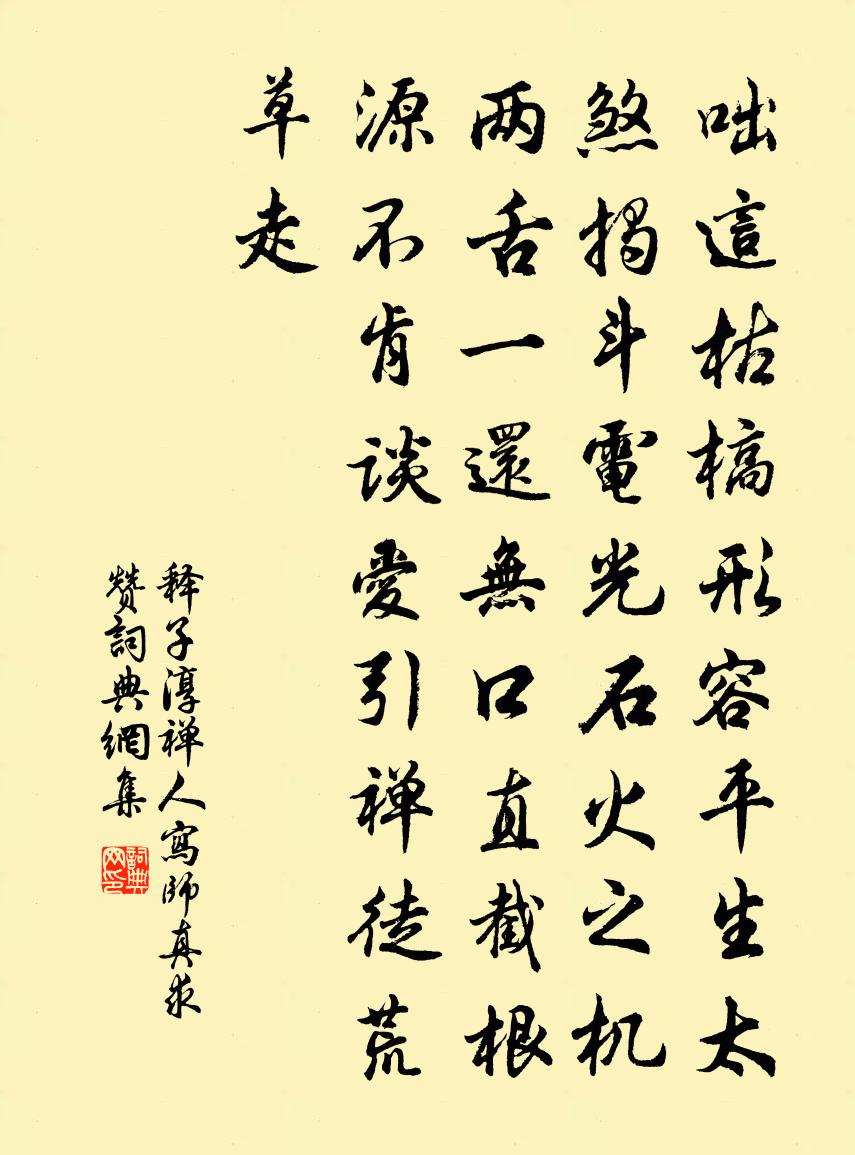 咄這枯槁形容平生太
煞揭斗電光石火之机
两舌一還無口直截根
源不肯谈愛引禅徒荒
草走
释子淳禅人寫師真求
赞詞典網集
詞典
网印